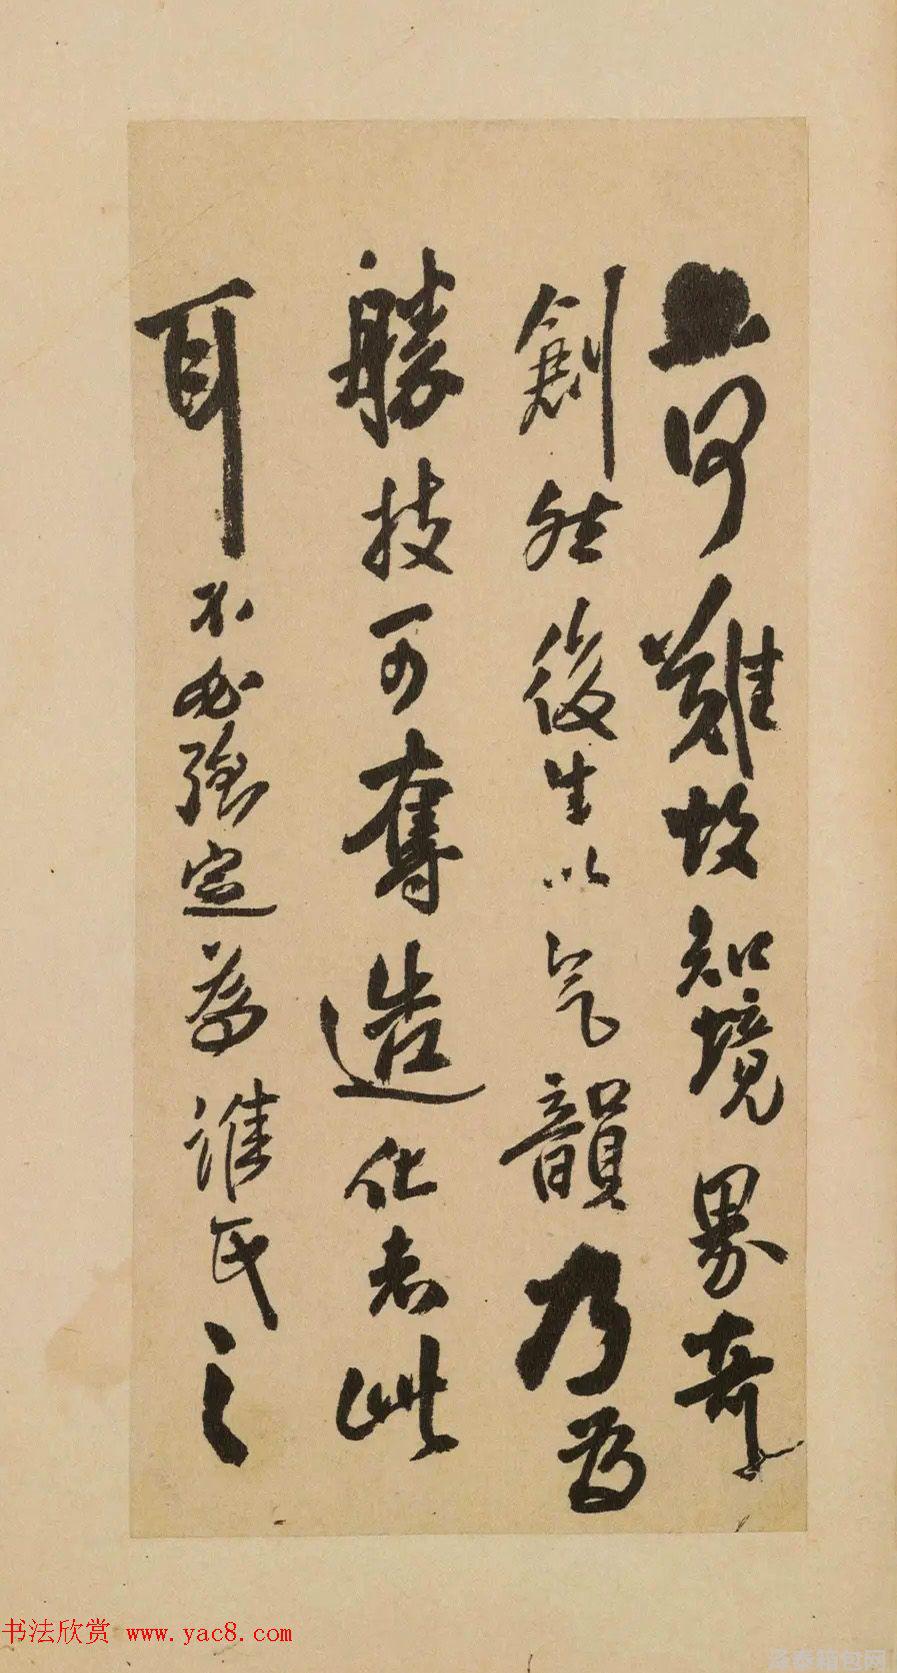 何難故知境界奇
創然後生以气韻乃為
勝技可奪造化者此
耳不必強定為誰氏之
书法欣赏 www.yac8.com